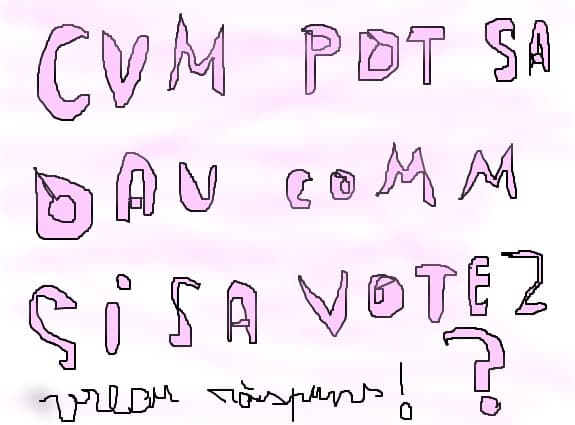 CUM POT SA
DAU COMM
ŞI SA VOTEZ
?
vreau răspuns!